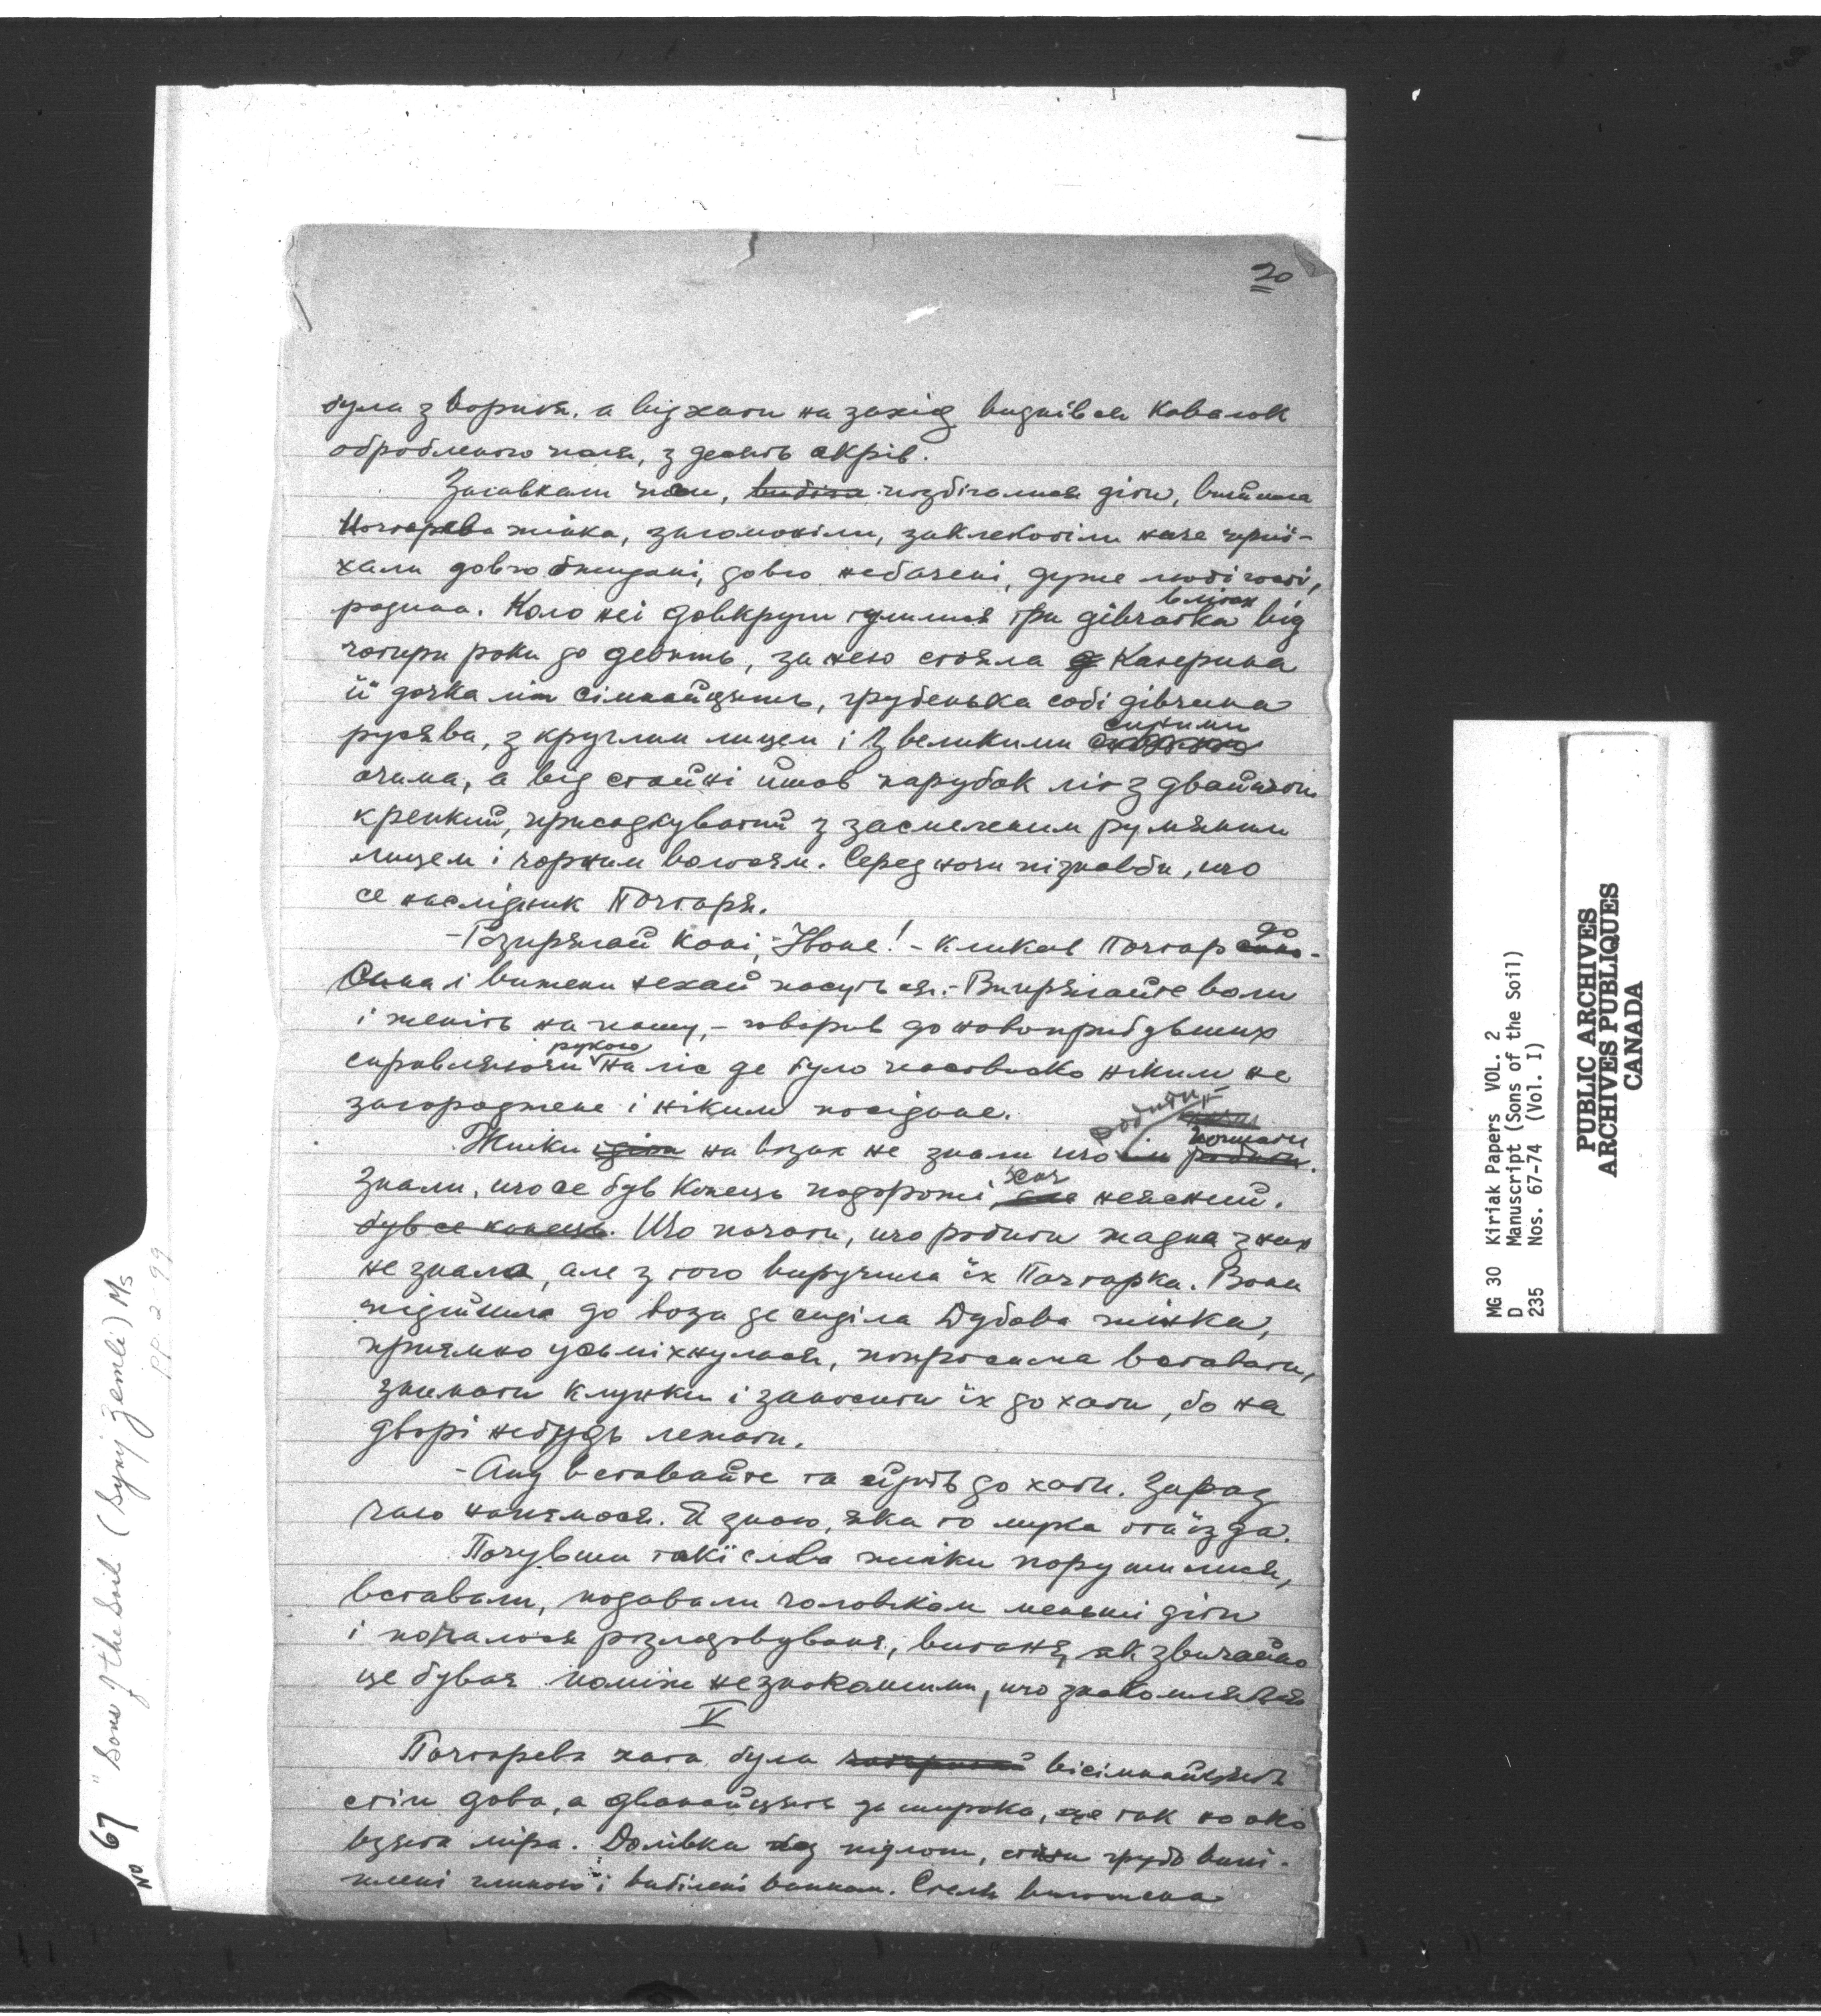 20
була з вориня, а від хати на захід виднівся кавалок
обробленого поля, з десять акрів.
Загавкали пси, позбігалися діти, вийшла
Почтарева жінка, загомоніли, заклекотіли наче приї-
хали довго ожидані, довго небачені, дуже любі гості,
родина. Коло неї довкруги тулилися три дівчатка віком від
чотири роки до девять, за нею стояла Катерина
її дочка літ сімнайцять, грубенька собі дівчина
русява, з круглим лицем і з великими синими
очима, а від стайні йшов парубок літ з двайцять
крепкий, присадкуватий з засмаленим румяним
лицем і чорним волосям. Серед ночи пізнавби, що
се наслідник Почтаря.
- Розпрягай коні, Йване! - кликав Почтар до
сина і вижени нехай пасуть ся. - Випрягайте воли
і женіть на пашу, - говорив до новоприбувших
справляючи рукою на ліс де було пасовиско ніким не
загороджене і ніким посідане.
Жінки на возах не знали що робити починати.
Знали, що се був конець подорожі, хоч неясний.
був се конець. Що почати, що робити жадна з них
не знала, але з того виручила їх Почтарка. Вона
підійшла до воза де сиділа Дубова жінка,
приямно усьміхнулася, попросила вставати,
знимати клунки і заносити їх до хати, бо на
дворі небудь лежати.
- Ану вставайте та йдіть до хати. Зараз
чаю напємося. Я знаю, яка то мука ота їзда.
Почувши такі слова жінки порушилися,
вставали, подавали чоловікам меньші діти
і почалося розладовуваня, витаня, як звичайно
це буває поміж незнакомими, що знакомляться
V
Почтарева хата була вісімнайцять
стіп довга, а дванайцять за широка, це так на око
взята міра. Долівка без підлоги, стіни грубо вилі-
плені глиною і вибілені вапном. Стеля виложена
No 67 "Sons of the Soil (Syny Zemli) Ms
PP 2-99
MG 30 Kiriak Papers VOL. 2
D Manuscript (Sons of the Soil)
235 Nos. 67-74 (Vol. I)
PUBLIC ARCHIVES
ARCHIVES PUBLIQUES
CANADA